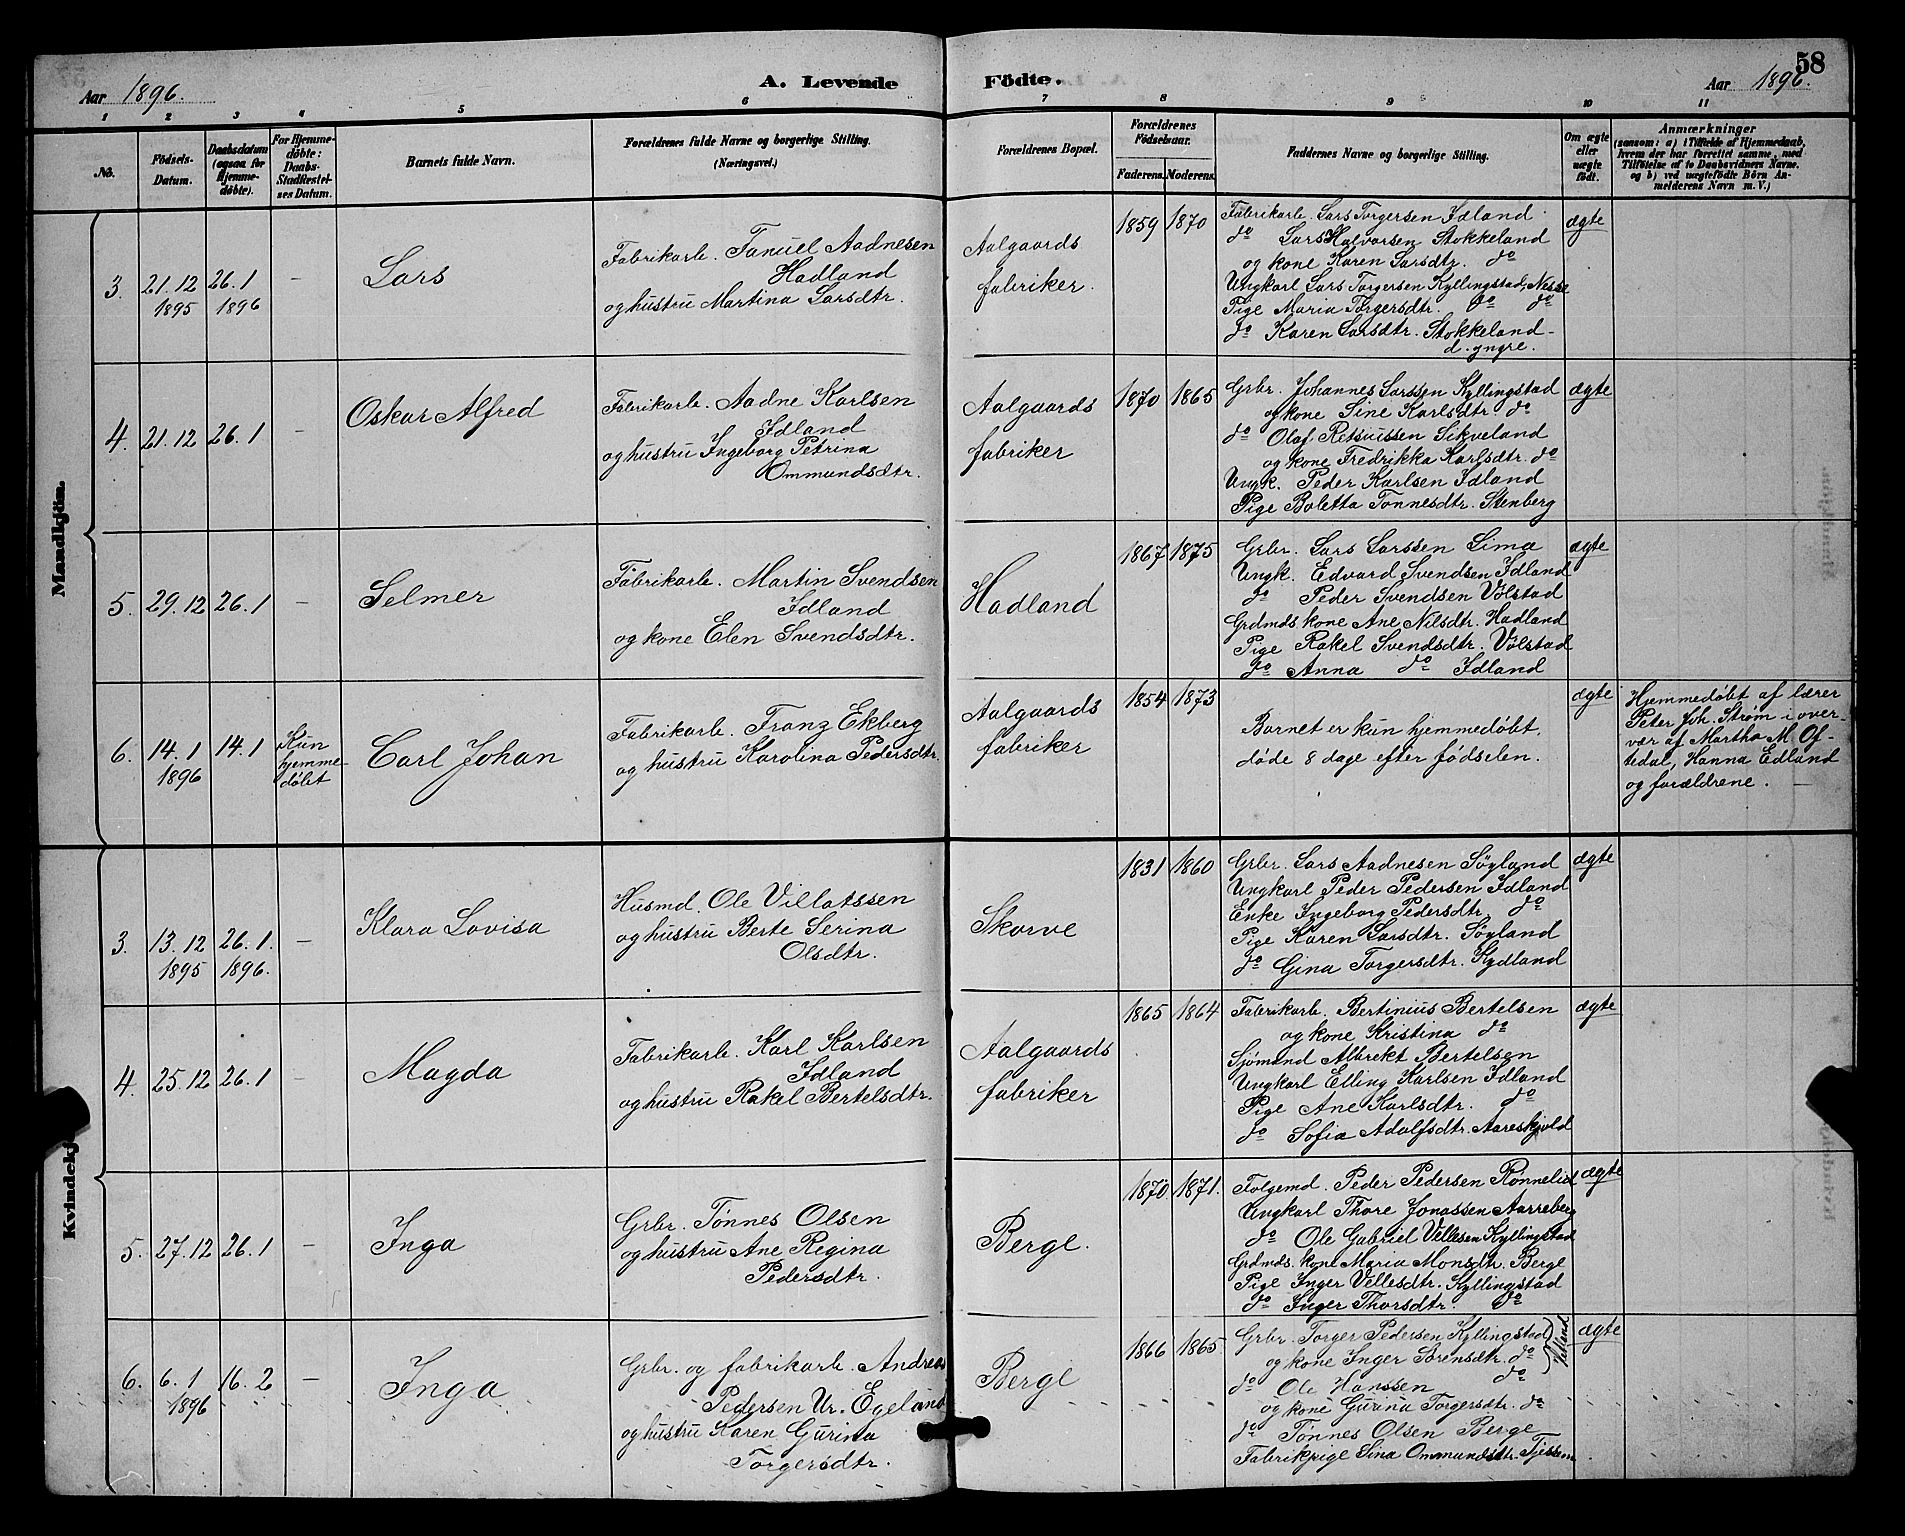 58
Aar 1896.
A. Levende Födte.
Aar 1896.
1 2 3 4 5 6 7 8 9 10 11
No.
Födsels-
Datum.
Daabsdatum
(ogsaa for
Hjemme-
døbte).
For Hjemme-
døbte:
Daabs-
Stadfæstel-
ses Datum.
Barnets fulde Navn.
Forældrenes fulde Navne og borgerlige Stilling.
(Næringsvei.)
Forældrenes Bopæl.
Forældrenes
Födselsaar.
Faderens. Moderens.
Faddernes Navne og borgerlige Stilling.
Om ægte
eller
uægte
født.
Anmærkninger
(saasom: a) i Tilfælde af Hjemmedaab,
hvem der har forrettet samme, med
Tilføielse af to Daabsvidners Navne.
og b) ved uægtefødte Börn An-
melderens Navn m. V.)
Mandkjön.
3. 21.12 1895
26.1 1896
–
Lars
Fabrikarb. Tanuel Aadnesen
Hadland
og hustru Martina Larsdtr.
Aalgaards
fabriker.
1859 1870
Fabrikarb. Lars Torgersen Idland
do Lars Halvorsen Stokkeland
og kone Karen Larsdtr. do
Ungkarl Lars Torgersen Kyllingstad, Nesse
Pige Maria Torgersdtr. do do
do Karen Larsdtr. Stokkeland
d. yngre.
ægte
4. 21.12 26.1
–
Oskar Alfred
Fabrikarb. Aadne Karlsen
Idland
og hustru Ingeborg Petrina
Ommundsdtr.
Aalgaards
fabriker
1870 1865
Grbr. Johannes Larssen Kyllingstad
og kone Sine Karlsdtr do
do Olaf Retsiussen Sikveland
og kone Fredrikka Karlsdtr. do
Ungk. Peder Karlsen Idland
Pige Boletta Tonnesdtr. Stenberg
ægte
5. 29.12 26.1
–
Selmer
Fabrikarb. Martin Svendsen
Idland
og kone Elen Svendsdtr.
Hadland
1867 1875
Grbr. Lars Larssen Lima
Ungk. Edvard Svendsen Idland
do Peder Svendsen Vølstad
Grdmds. kone Ane Nilsdtr. Hadland
Pige Rakel Svendsdtr. Vølstad
do Anna do Idland
ægte
6. 14.1 1896
14.1
Kun
hjemme-
døbt
Carl Johan
Fabrikarb. Franz Ekberg
og hustru Karolina Pedersdtr.
Aalgaards
fabriker
1854 1873
Barnet er kun hjemmedøbt,
døde 8 dage efter fødselen.
ægte
Hjemmedøbt af lærer
Peter Joh. Strøm i over-
vær af Martha M. Of-
tedal, Hanna Edland
og forældrene.
Kvindekj
3. 13.12 1895
26.1. 1896.
–
Klara Lovisa
Husmd. Ole Villatssen
og hustru Berte Serina
Olsdtr.
Skorve
1831 1860
Grbr. Lars Aadnesen Søyland
Ungkarl Peder Pedersen Idland
Enke Ingeborg Pedersdtr. do
Pige Karen Larsdtr. Søyland
do Gina Torgersdtr. Kydland
ægte
4. 25.12 26.1
–
Magda
Fabrikarb. Karl Karlsen
Idland
og hustru Rakel Bertelsdtr.
Aalgaards
fabriker
1865 1864
Fabrikarb. Bertinius Bertelsen
og kone Kristina do
Sjømand Albrekt Bertelsen
Ungkarl Elling Karlsen Idland
Pige Ane Karlsdtr. do
do Sofia Adolfsdtr. Aareskjold
ægte
5. 27.12 26.1
–
Inga
Grbr. Tønnes Olsen
og hustru Ane Regina
Pedersdtr.
Berge.
1870 1871.
Folgemd. Peder Pedersen Rønnelid
Ungkarl Thore Jonassen Aarreberg
do Ole Gabriel Vellesen Kyllingstad
Grdmds. kone Maria Monsdtr. Berge
Pige Inger Vellesdtr. Kyllingstad
do Inger Thorsdtr. do
ægte
6. 6.1 1896
16.2
–
Inga
Grbr. og fabrikarb. Andreas
Pedersen Ur. Egeland
og hustru Karen Gurina
Torgersdtr.
Berge
1866 1865
Grbr. Torger Pedersen Kyllingstad
og kone Inger Sørensdtr. do
do Ole Hanssen do
og kone Gurina Torgersdtr. do
do Tønnes Olsen Berge
Fabrikpige Sina Ommundsdtr. Tjessem
ægte